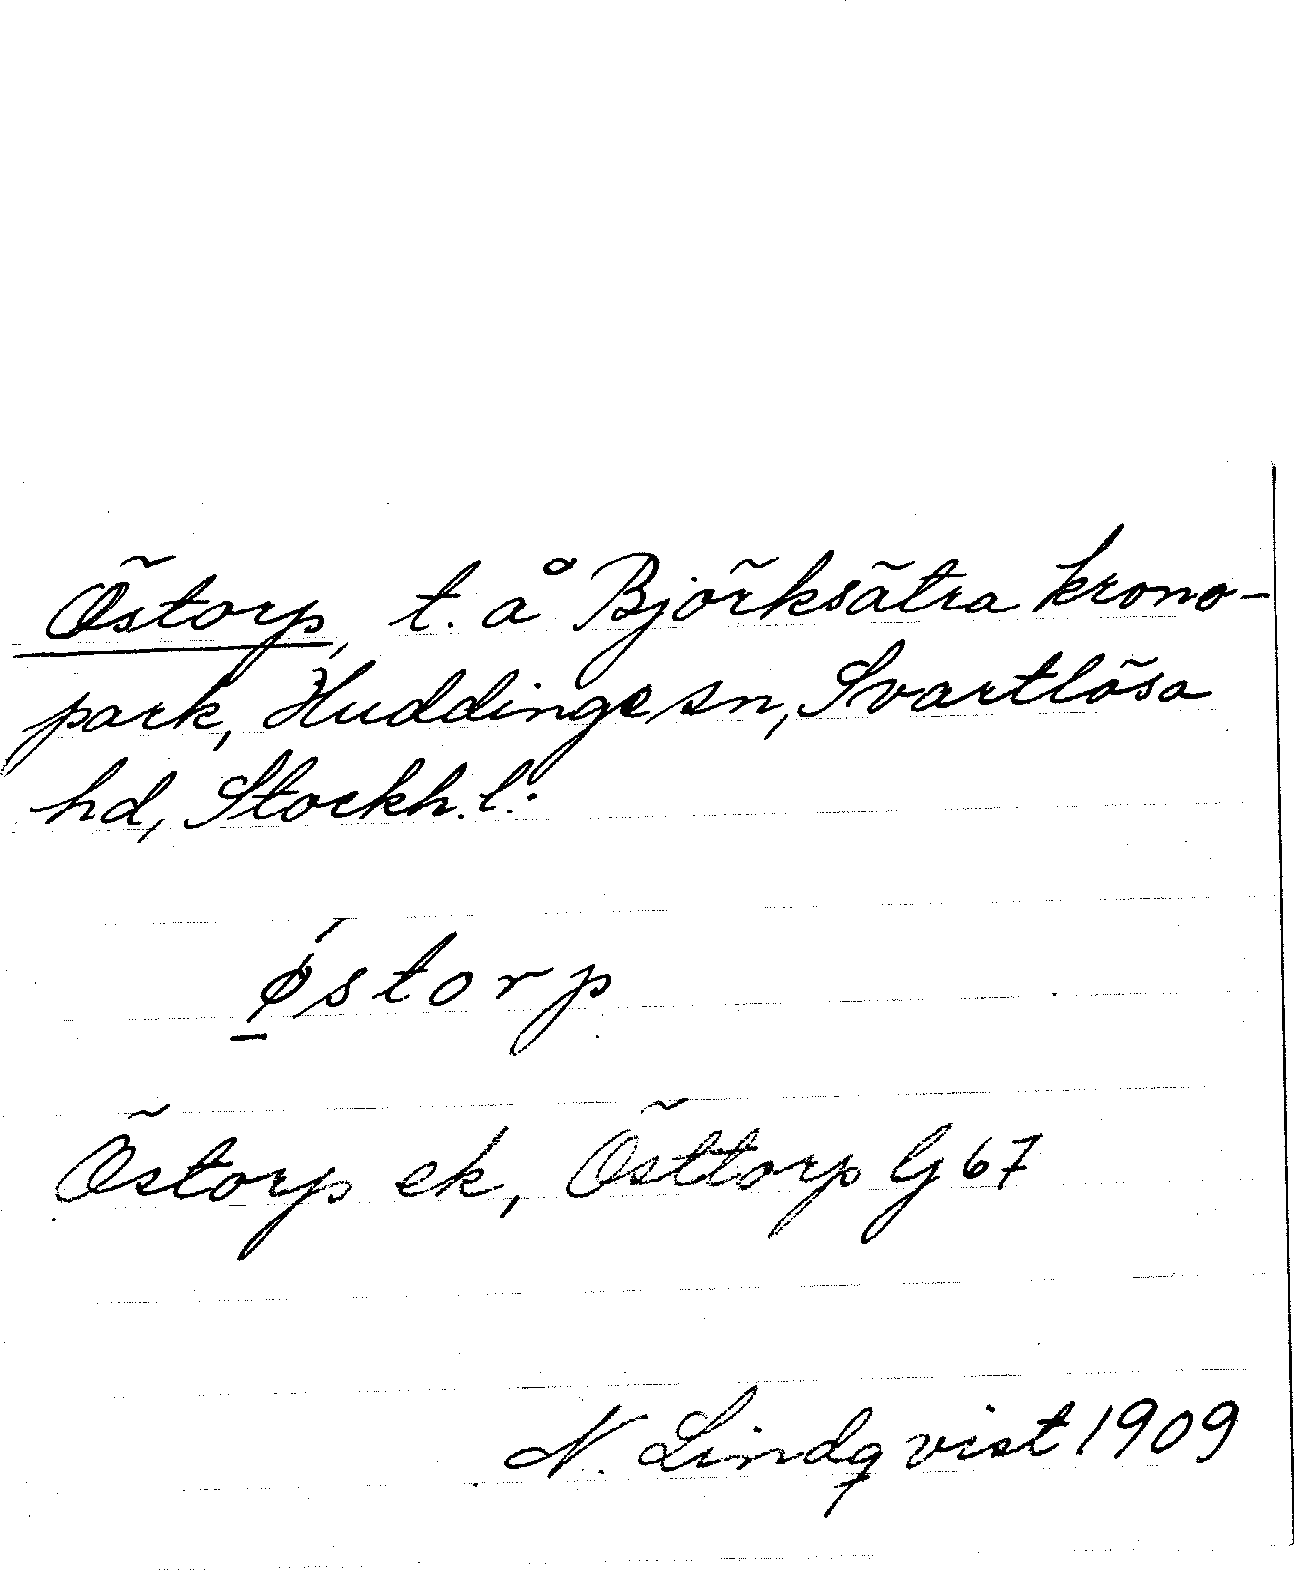 Östorp, t. å Björksätra krono-
park, Huddinge sn, Svartlösa
hd, Stockh. l.
ǿ̱storp
Östorp ek, Östtorp G 67
N. Lindqvist 1909